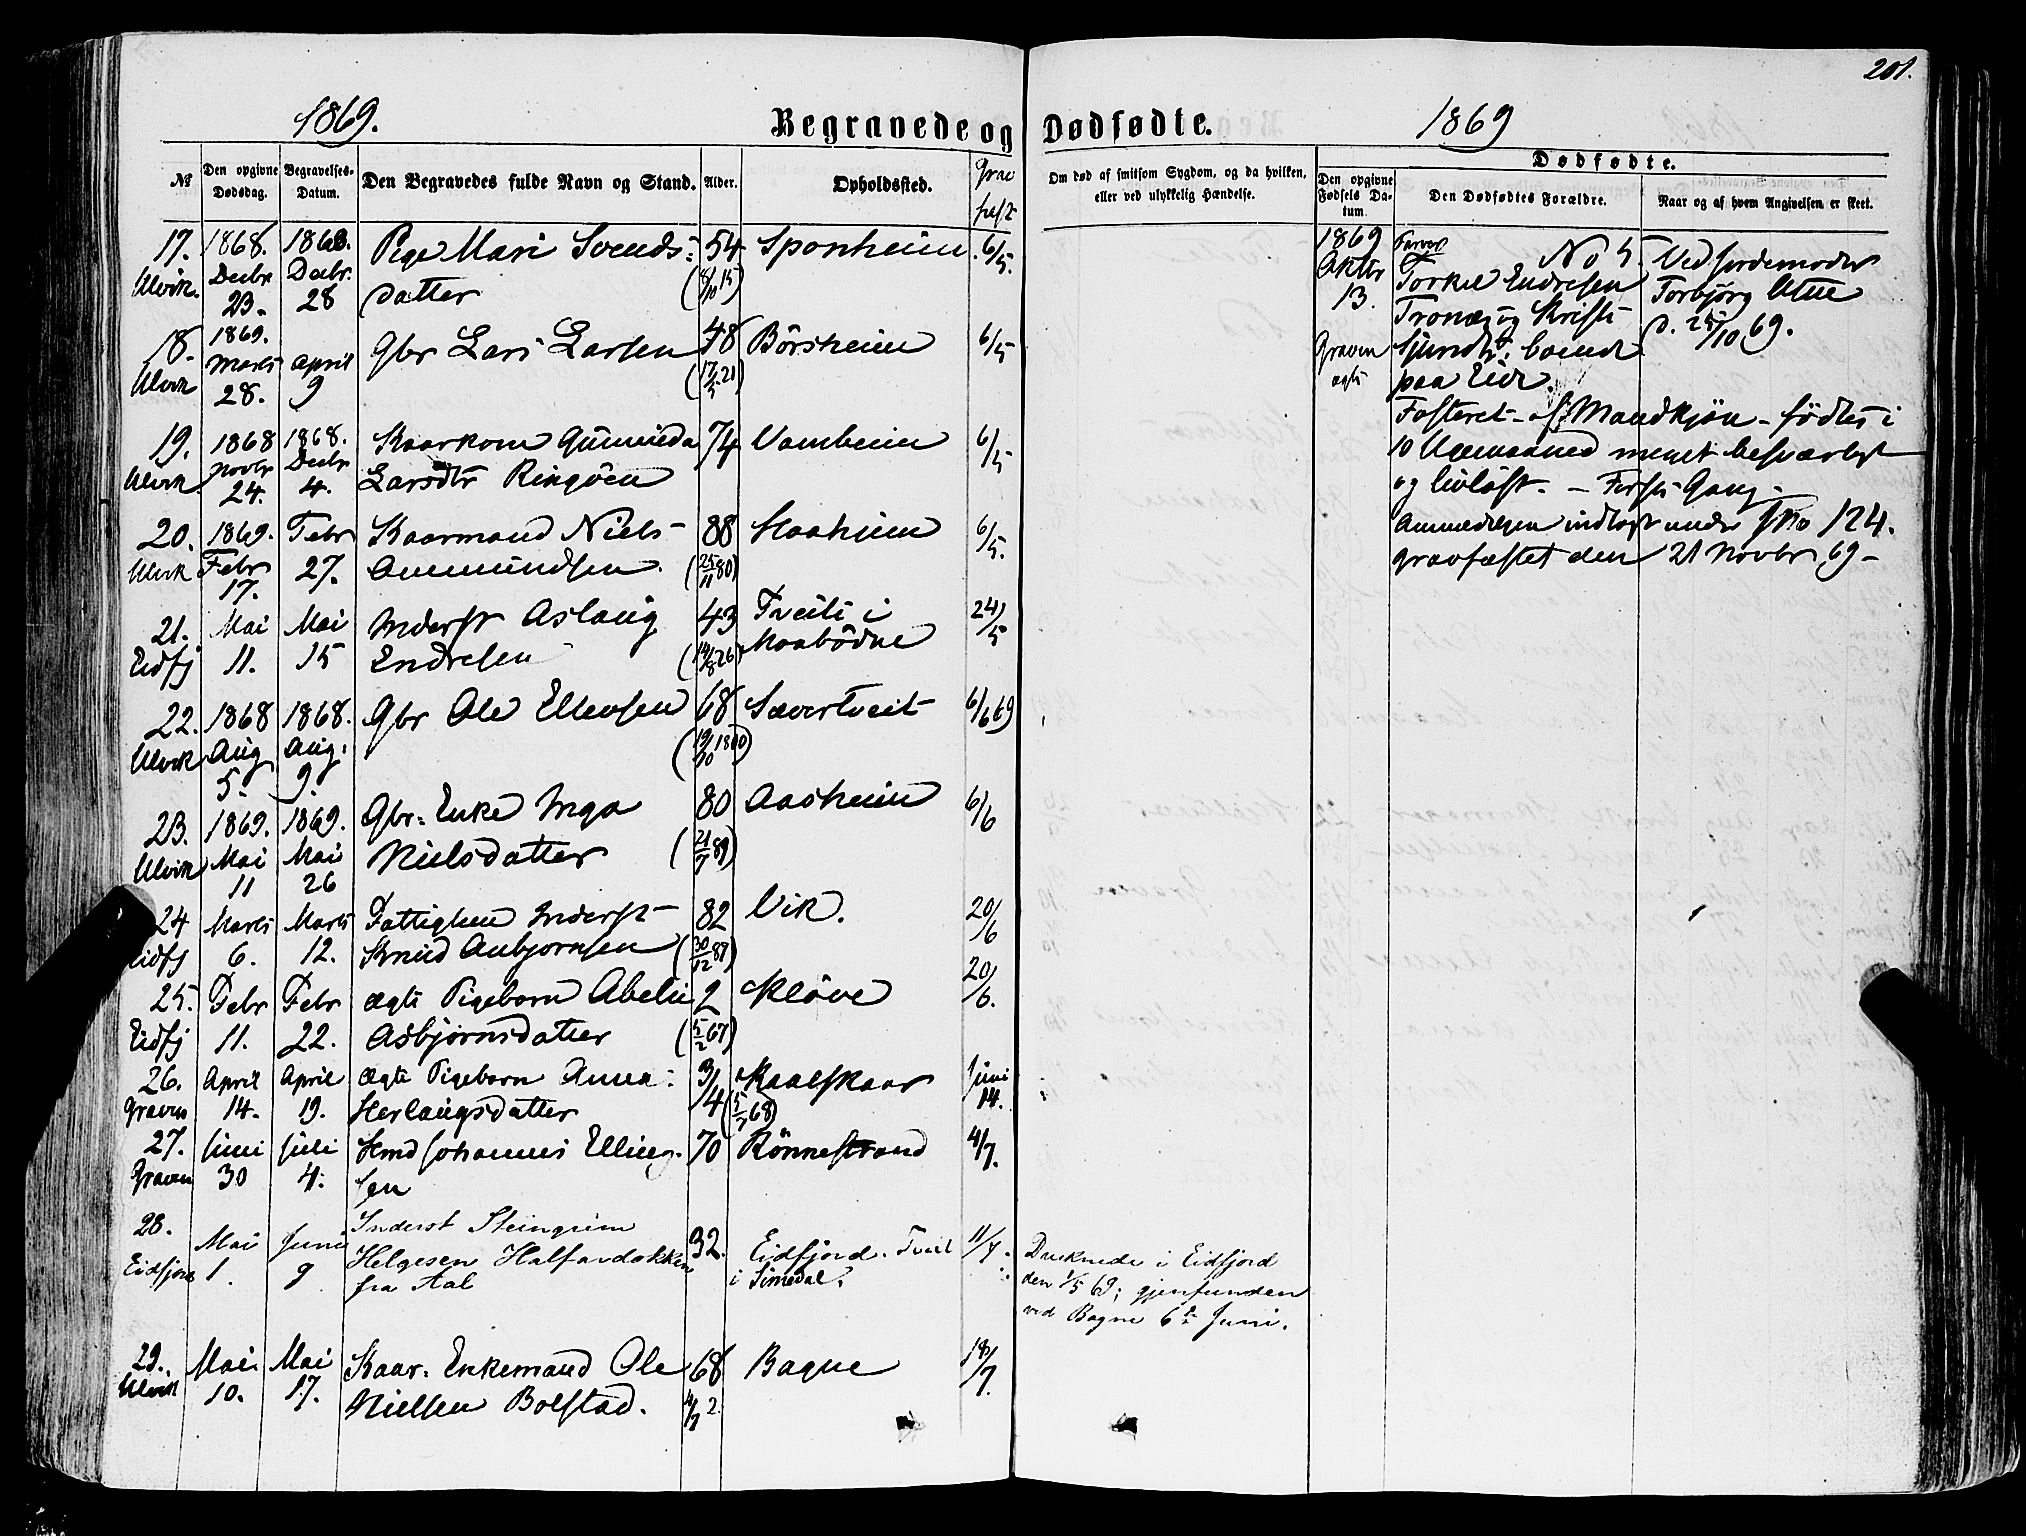 201.
1869.
Begravede og Dødfødte.
1869
№
Den opgivne Dødsdag.
Begravelses-Datum.
Den Begravedes fulde Navn og Stand.
Alder.
Opholdssted.
Grav fest
Om død af smitsom Sygdom, og da hvilken, eller ved ulykkelig Hændelse.
Dødfødte.
Den opgivne Fødsels Datum.
Den Dødfødtes Forældre.
Naar og af hvem Angivelsen er skeet.
17. 1868. 1868. Pige Mari Svends- 54 Sponheim 6/5.
Ulvik. Decbr 23. Decbr. 28 datter (8/10 15)
18. 1869. Marts april Gbr Lars Larsen 48 Börsheim 6/5
Ulvik 28. 9 (17/5 21)
19. 1868 1868. Kaarkone Gunnilda 74 Vambheim 6/5
Ulvik Novbr 24. Decbr 4. Larsdtr Ringöen
20. 1869. Febr Kaarmand Niels 88 Haaheim 6/5.
Ulvik Febr 17. 27. Ammundsen (25/11 80)
21. Mai Mai Inderst Aslaug 43 Tveiti i 24/5
Eidfj 11. 15 Endresen (14/8 26) Maabödne
22. 1868 1868. Gbr Ole Ellevsen 68 Sævertveit 6/6 69
Ulvik Aug 5. Aug. 9. (19/10 1800)
23. 1869. 1869. Gbr. Enke Inga 80 Aasheim 6/6
Ulvik Mai 11 Mai 26 Nielsdatter (21/7 89)
24 Marts Marts Fattiglem Inderst 82 Vik. 20/6
Eidfj 6. 12. Knud Anbjørnsen (30/12 87)
25. Febr Febr ægte Pigebarn Abelie 2 Klöve 20/6.
Eidfj 11. 22. Asbjørnsdatter (5/2 67)
26. April April ægte Pigebarn Anna 3/4 Kaalskaar Juni 14.
Graven 14. 19. Herlaugsdatter (5/7 68)
27. Juni Juli Hmd Johannes Elling- 70 Rönnestrand 4/7.
Graven 30 4. sen
28. Mai Juni Inderst Steingrim 32. Eidfjord. Tveit 11/7.
Eidfjord 1. 9 Helgesen Halfardokken i Simedal.
fra Aal
Druknede i Eidfjord
den 1/5 69; gjenfunden
ved Bagne 6te Juni.
29. Mai Mai Kaar. Enkemand Ole 68 Bagne 18/7.
Ulvik 10. 17. Nielsen Bolstad.
1869 Farver No 5. Ved Jordemoder
Oktbr Torkel Endresen Torbjørg Utne
13. Tronæs og Kristi d. 25/10 69.
Graven Sjundtr. boende
ægte paa Eide.
Fosteret - af Mandkjøn - fødtes i
10 Ugemaaned meget besværligt
og livløst. - Første Gang.
Anmeldelsen indlagt under No 124.
gravfæstet den 21 Novbr 69 -